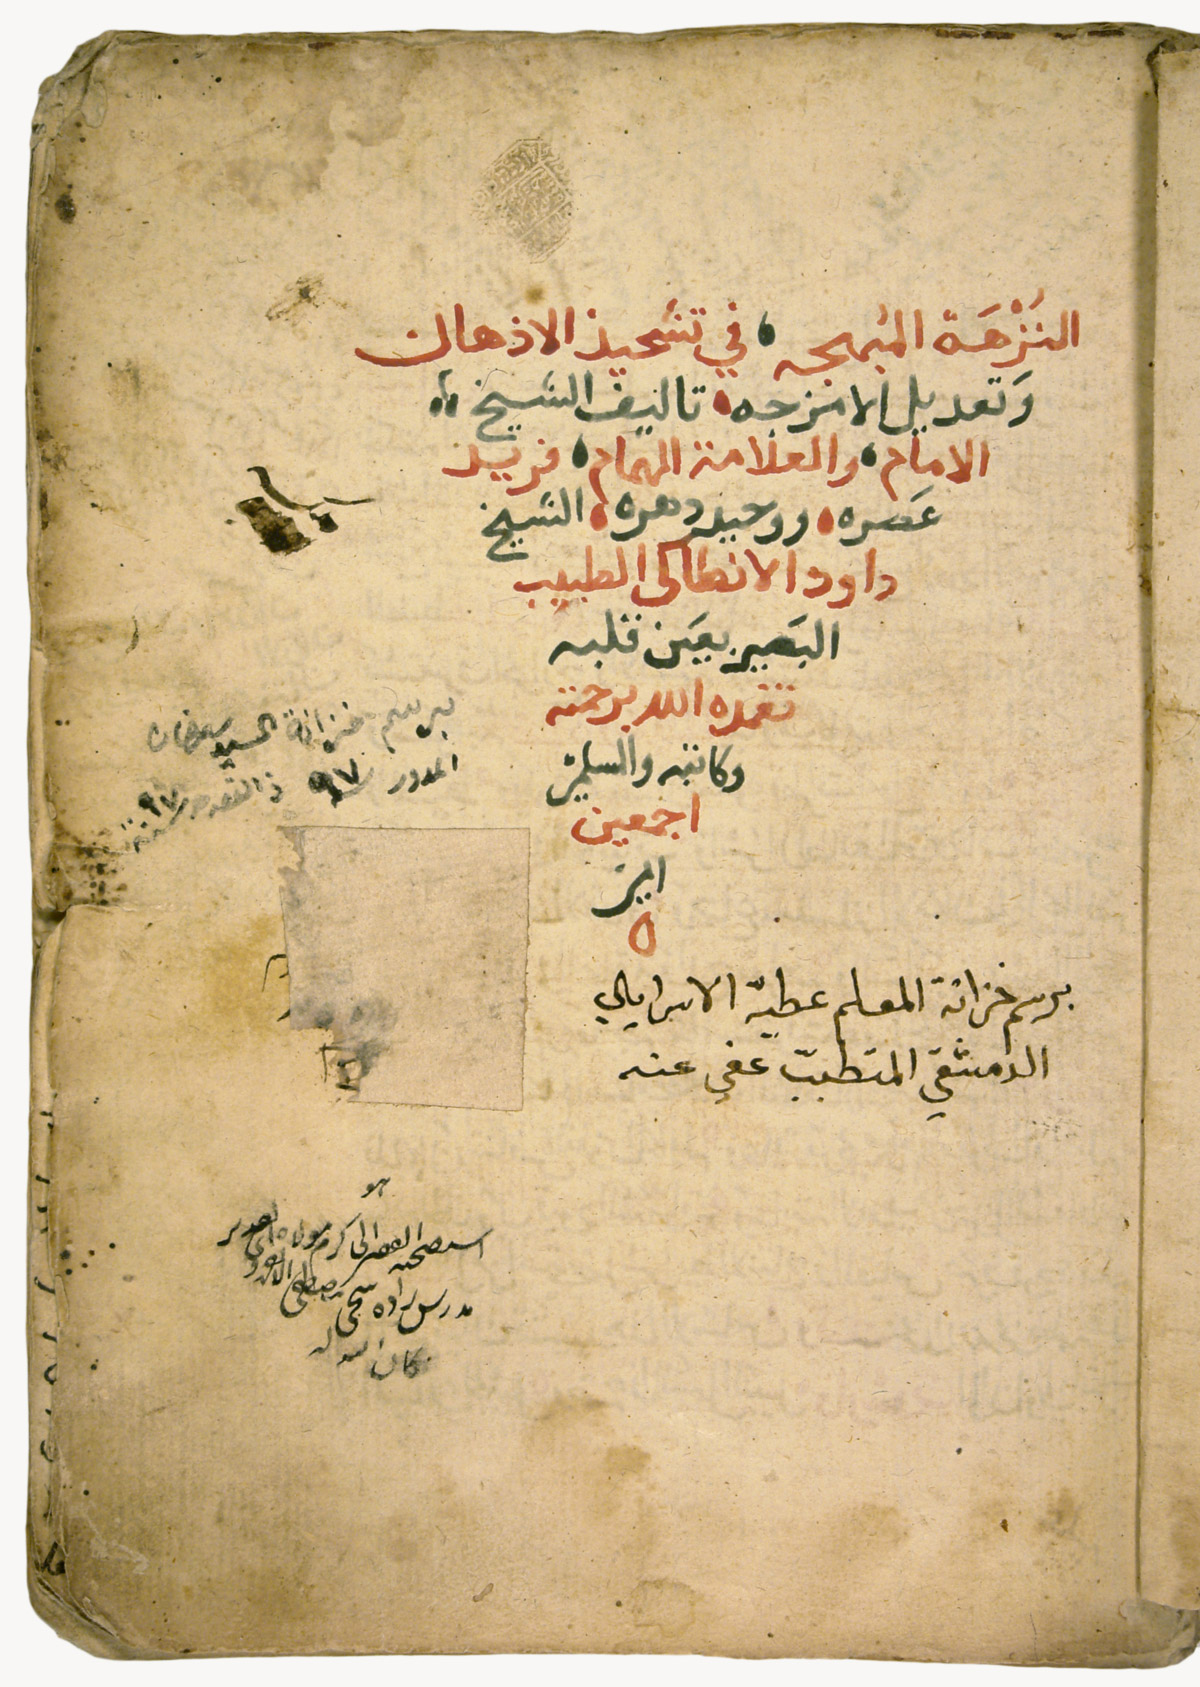 النُزْهَة المُبهجه في تشحيذ الاذهان
وَتعديل الامزجه تاليف الشيخ
الامام والعلامة الهمام فريد
عَصره ووحيد دهره الشيخ
داود الانطاكي الطبيب
البَصير بعَين قلبه
تغمده الله برحمته
وكاتبه والمسلمين
اجمعين
امين
ه
برسم خزانة السيد
المدرر سنة ٩٧ ذ القعده سنة ٩٧
برسم خزانة المعلم عطية الاسرايلي
الدمشقي المتطبب عفي عنه
هو
استصحبه الفقير الى كرم مولاه القدير
مدرس زاده مصطفى
كان الله له